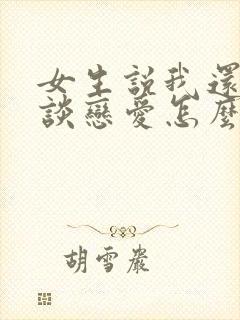 女生説我還
談戀愛怎麼
胡雪巖